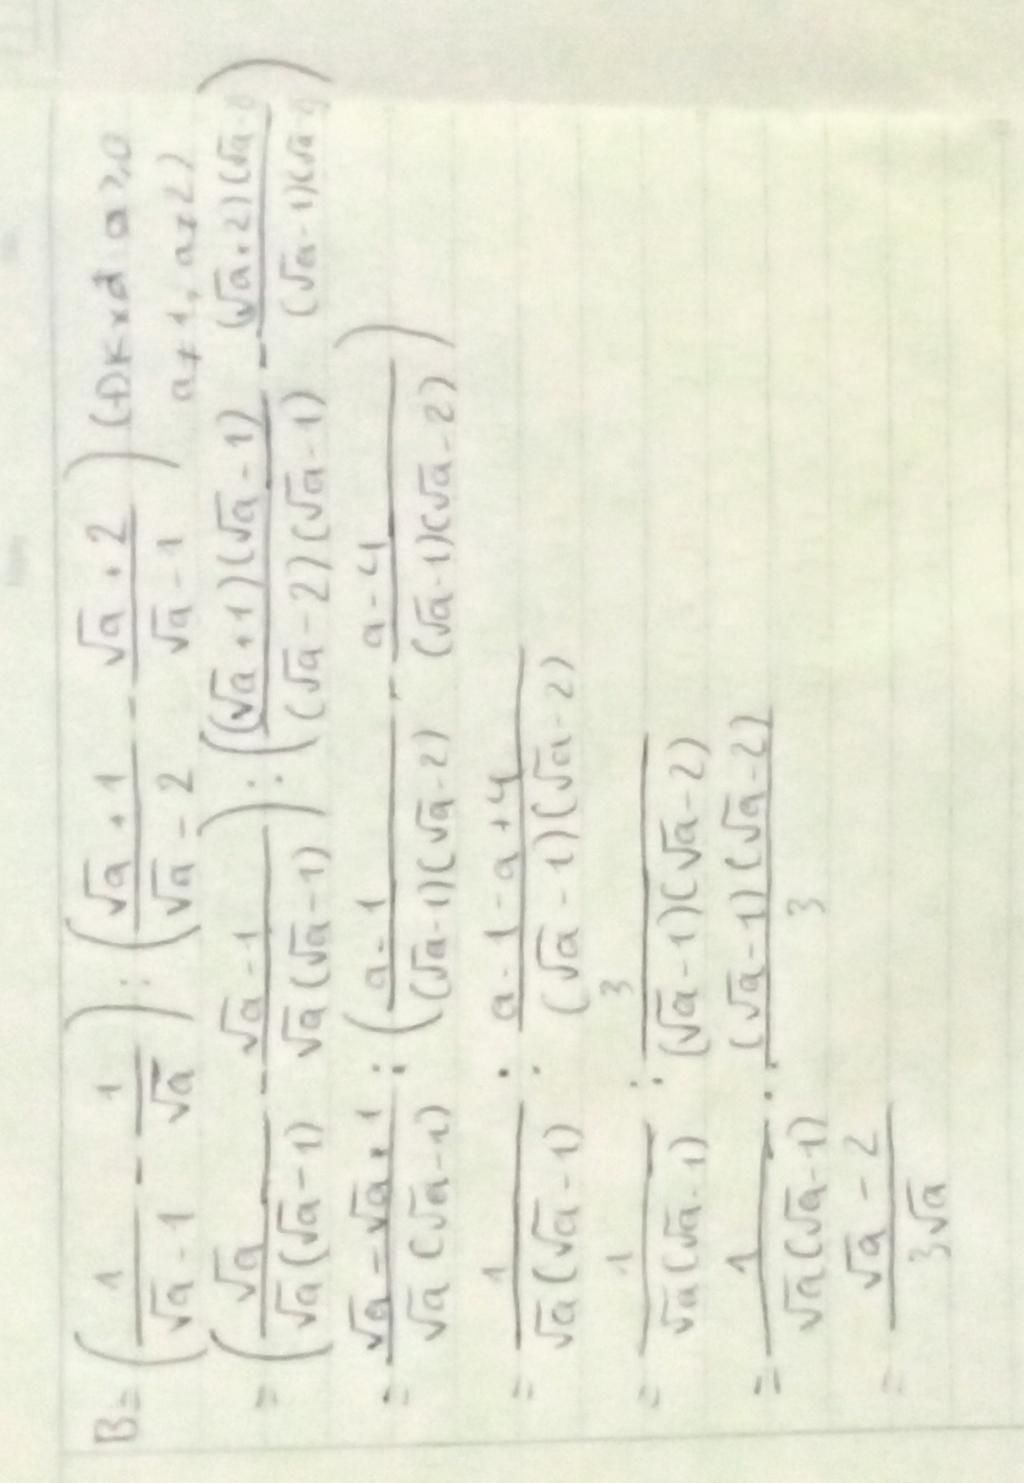 B = (1/(√a - 1) - 1/√a) : ((√a + 1)/(√a - 2) - (√a + 2)/(√a - 1)) (Đkxđ a ≥ 0
a ≠ 1, a ≠ 2)
= (√a/(√a(√a - 1)) - (√a - 1)/(√a(√a - 1))) : (((√a + 1)(√a - 1))/((√a - 2)(√a - 1)) - ((√a + 2)(√a - 2))/((√a - 1)(√a - 2)))
= (√a - √a + 1)/(√a(√a - 1)) : ((a - 1)/((√a - 1)(√a - 2)) - (a - 4)/((√a - 1)(√a - 2)))
= 1/(√a(√a - 1)) : (a - 1 - a + 4)/((√a - 1)(√a - 2))
= 1/(√a(√a - 1)) : 3/((√a - 1)(√a - 2))
= 1/(√a(√a - 1)) . ((√a - 1)(√a - 2))/3
= (√a - 2)/(3√a)